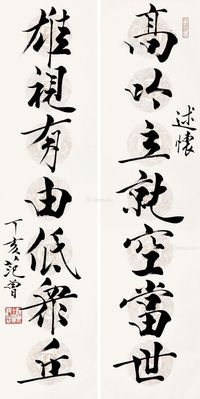 述懷
高吟立就空當世
雄視有由低衆丘
丁亥 范曾